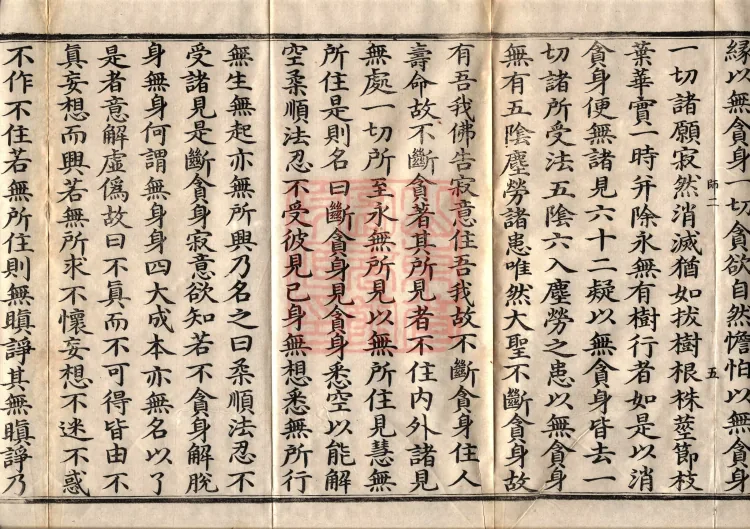 緣以無貪身一切貪欲自然憺怕以無貪身
師二 五
一切諸願寂然消滅猶如拔樹根株莖節枝
葉華實一時幷除永無有樹行者如是以消
貪身便無諸見六十二疑以無貪身皆去一
切諸所受法五陰六入塵勞之患以無貪身
無有五陰塵勞諸患唯然大聖不斷貪身故
有吾我佛告寂意住吾我故不斷貪身住人
壽命故不斷貪著其所見者不住內外諸見
無處一切所至永無所見以無所住見慧無
所住是則名曰斷貪身見貪身悉空以能解
空柔順法忍不受彼見己身無想悉無所行
無生無起亦無所興乃名之曰柔順法忍不
受諸見是斷貪身寂意欲知若不貪身解脫
身無身何謂無身身四大成本亦無名以了
是者意解虛僞故曰不眞而不可得皆由不
眞妄想而興若無所求不懷妄想不迷不惑
不作不住若無所住則無瞋諍其無瞋諍乃